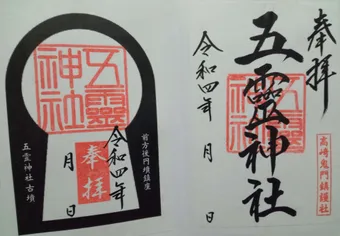 奉拝
五靈神社
五靈神社
令和四年 月 日
高崎鬼門鎮護社
五靈神社
前方後円墳鎮座
奉拝
令和四年
月 日
五霊神社古墳